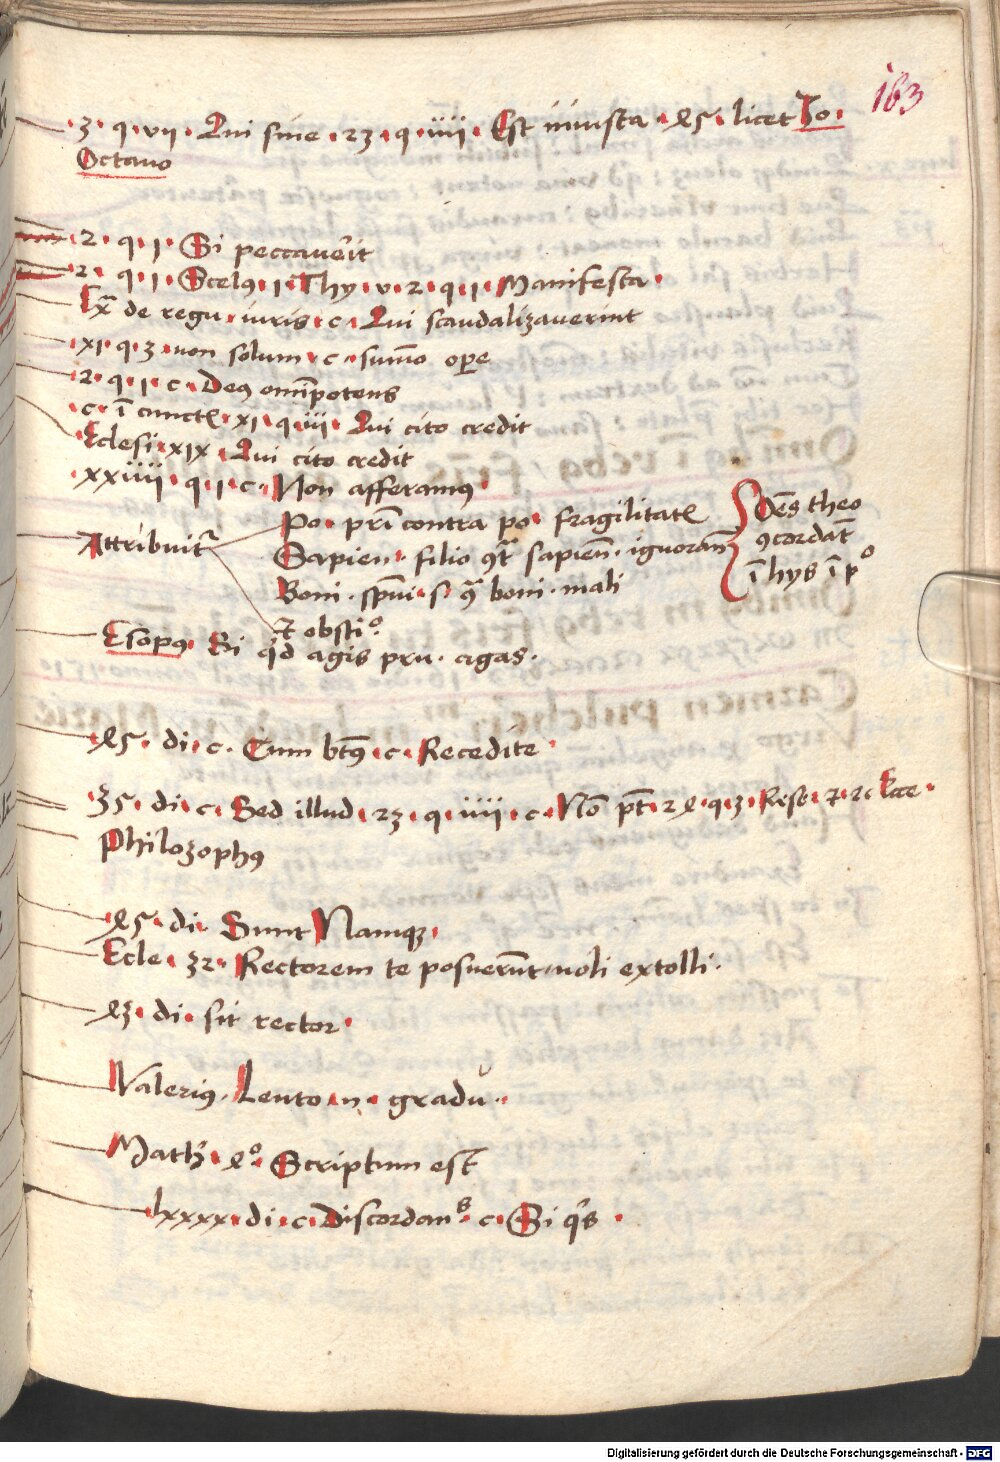 163
· 3 · q · vij · Qui sine · 23 · q · iiij · Est iniusta · 45 · licet Io ·
Octavo
· 2 · q · i · Si peccaverit
· 2 · q · i · Scelus · i · Thy · v · 2 · q · i · Manifesta ·
Ex de regu · iuris · c · Qui scandalizaverint
· xi · q · 3 · non solum · c · summo opere
· 2 · q · i · c · Deus omipotens
· c · i cunctis · xi · q · iij · Qui cito credit
Eclesi · xix · Qui cito credit
· xxiiij · q · i · c · Non afferamus
Attribuit
Po · pri contra po · fragilitate
Sapien · filio 9tra sapien · ignoran
Boni · spui · s 9tra boni · mali
Oes theo
9cordat
i hys i po
et obstio
Esopus · Si qd agis pru · agas ·
· 45 · di · c · Cum btus · c · Recedite ·
· 35 · di · c · Sed illud · 23 · q · iiij · c · No pt · 24 · q · 3 ·
Philozophus
· 45 · di · Sunt Namque ·
Ecle · 32 · Rectorem te posuerunt noli extolli ·
43 · di · sit rector ·
Valerius · Lento n · gradu ·
Math · 4o · Scriptum est
· lxxxx · di · c · Discordans · c · Si qis ·
Digitalisierung gefördert durch die Deutsche Forschungsgemeinschaft - DFG